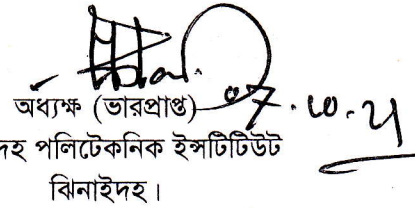 অধ্যক্ষ (ভারপ্রাপ্ত)
দহ পলিটেকনিক ইন্সটিটিউট
ঝিনাইদহ।